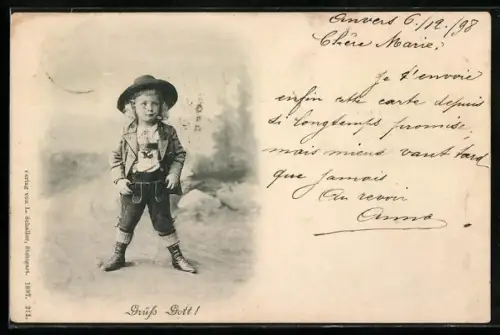 Anvers 6/12/98
Chère Marie,
Je t'envoie
enfin cette carte depuis
si longtemps promise,
mais mieux vaut tard
que jamais
Au revoir
Anna
Grüß Gott!
Verlag von L. Schaller, Stuttgart. 1897. 211.